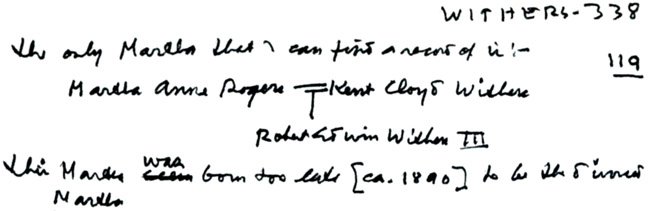 WITHERS-338
The only Martha that I can find a record of is :-
119
Martha Anne Rogers = Kent Cloyd Withers
Robert Edwin Withers III
This Martha was born too late [ca. 1890] to be the
Martha